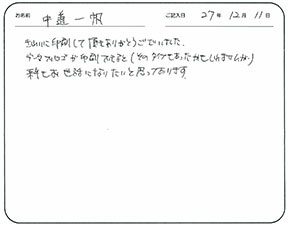 お名前 中道 一帆 ご記入日 27年 12月 11日
きれいに印刷して頂きありがとうございました。
データでロゴが印刷できると(そのタイプもあったかもしれませんが)
また お世話になりたいと思っております。